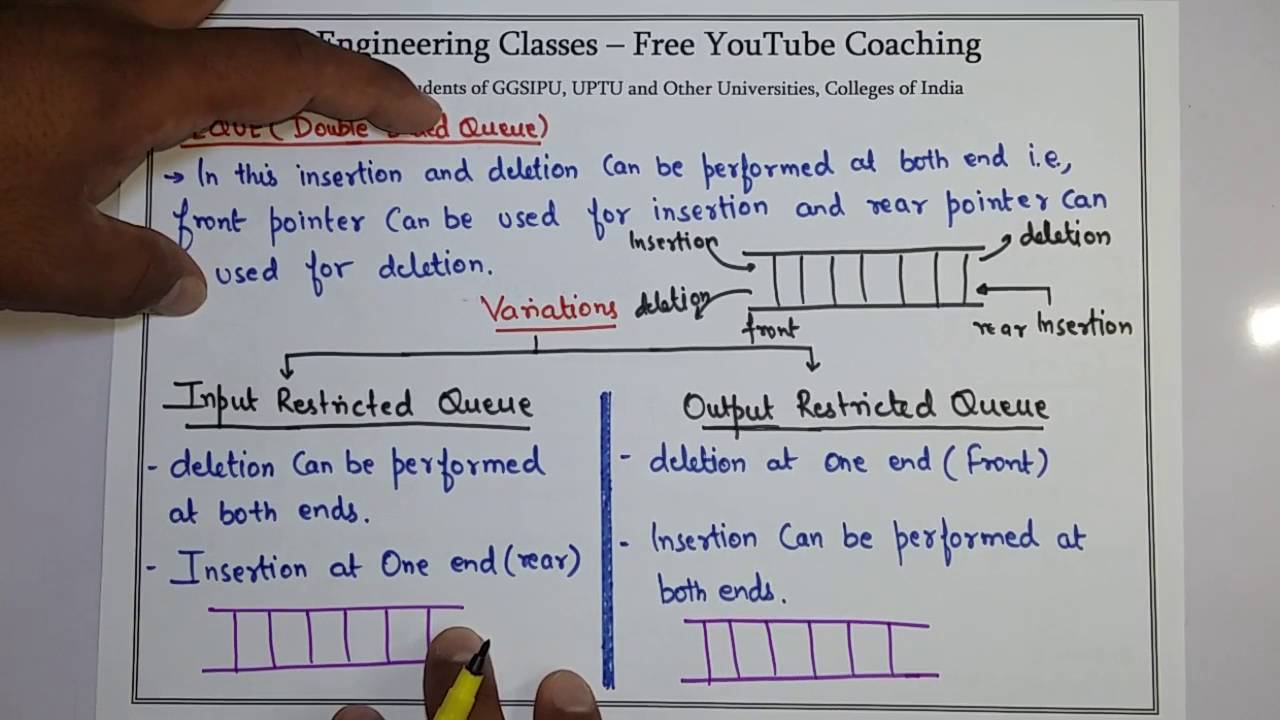 Engineering Classes – Free YouTube Coaching
of GGSIPU, UPTU and Other Universities, Colleges of India
(Double Queue)
→ In this insertion and deletion Can be performed at both end i.e.,
front pointer Can be used for insertion and rear pointer Can
used for deletion.
Insertion
deletion
Variations
deletion
front
rear Insertion
Input Restricted Queue
Output Restricted Queue
- deletion Can be performed
at both ends.
- Insertion at One end (rear)
- deletion at one end (front)
- Insertion Can be performed at
both ends.